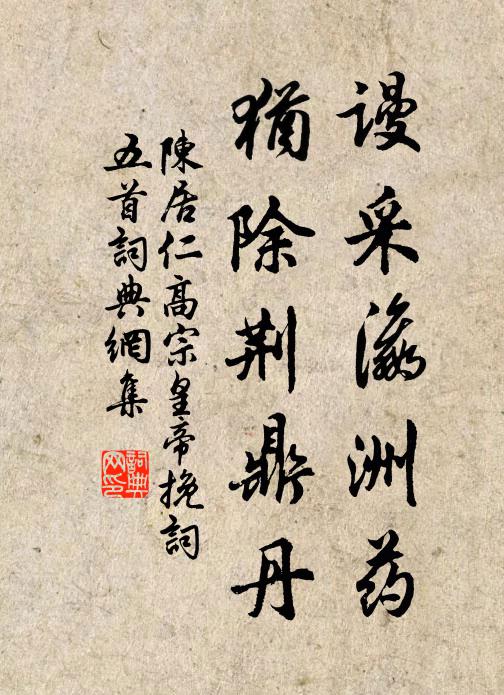 謾采瀛洲药
猶除荆鼎丹
陳居仁高宗皇帝挽詞
五首詞典網集
詞典网印